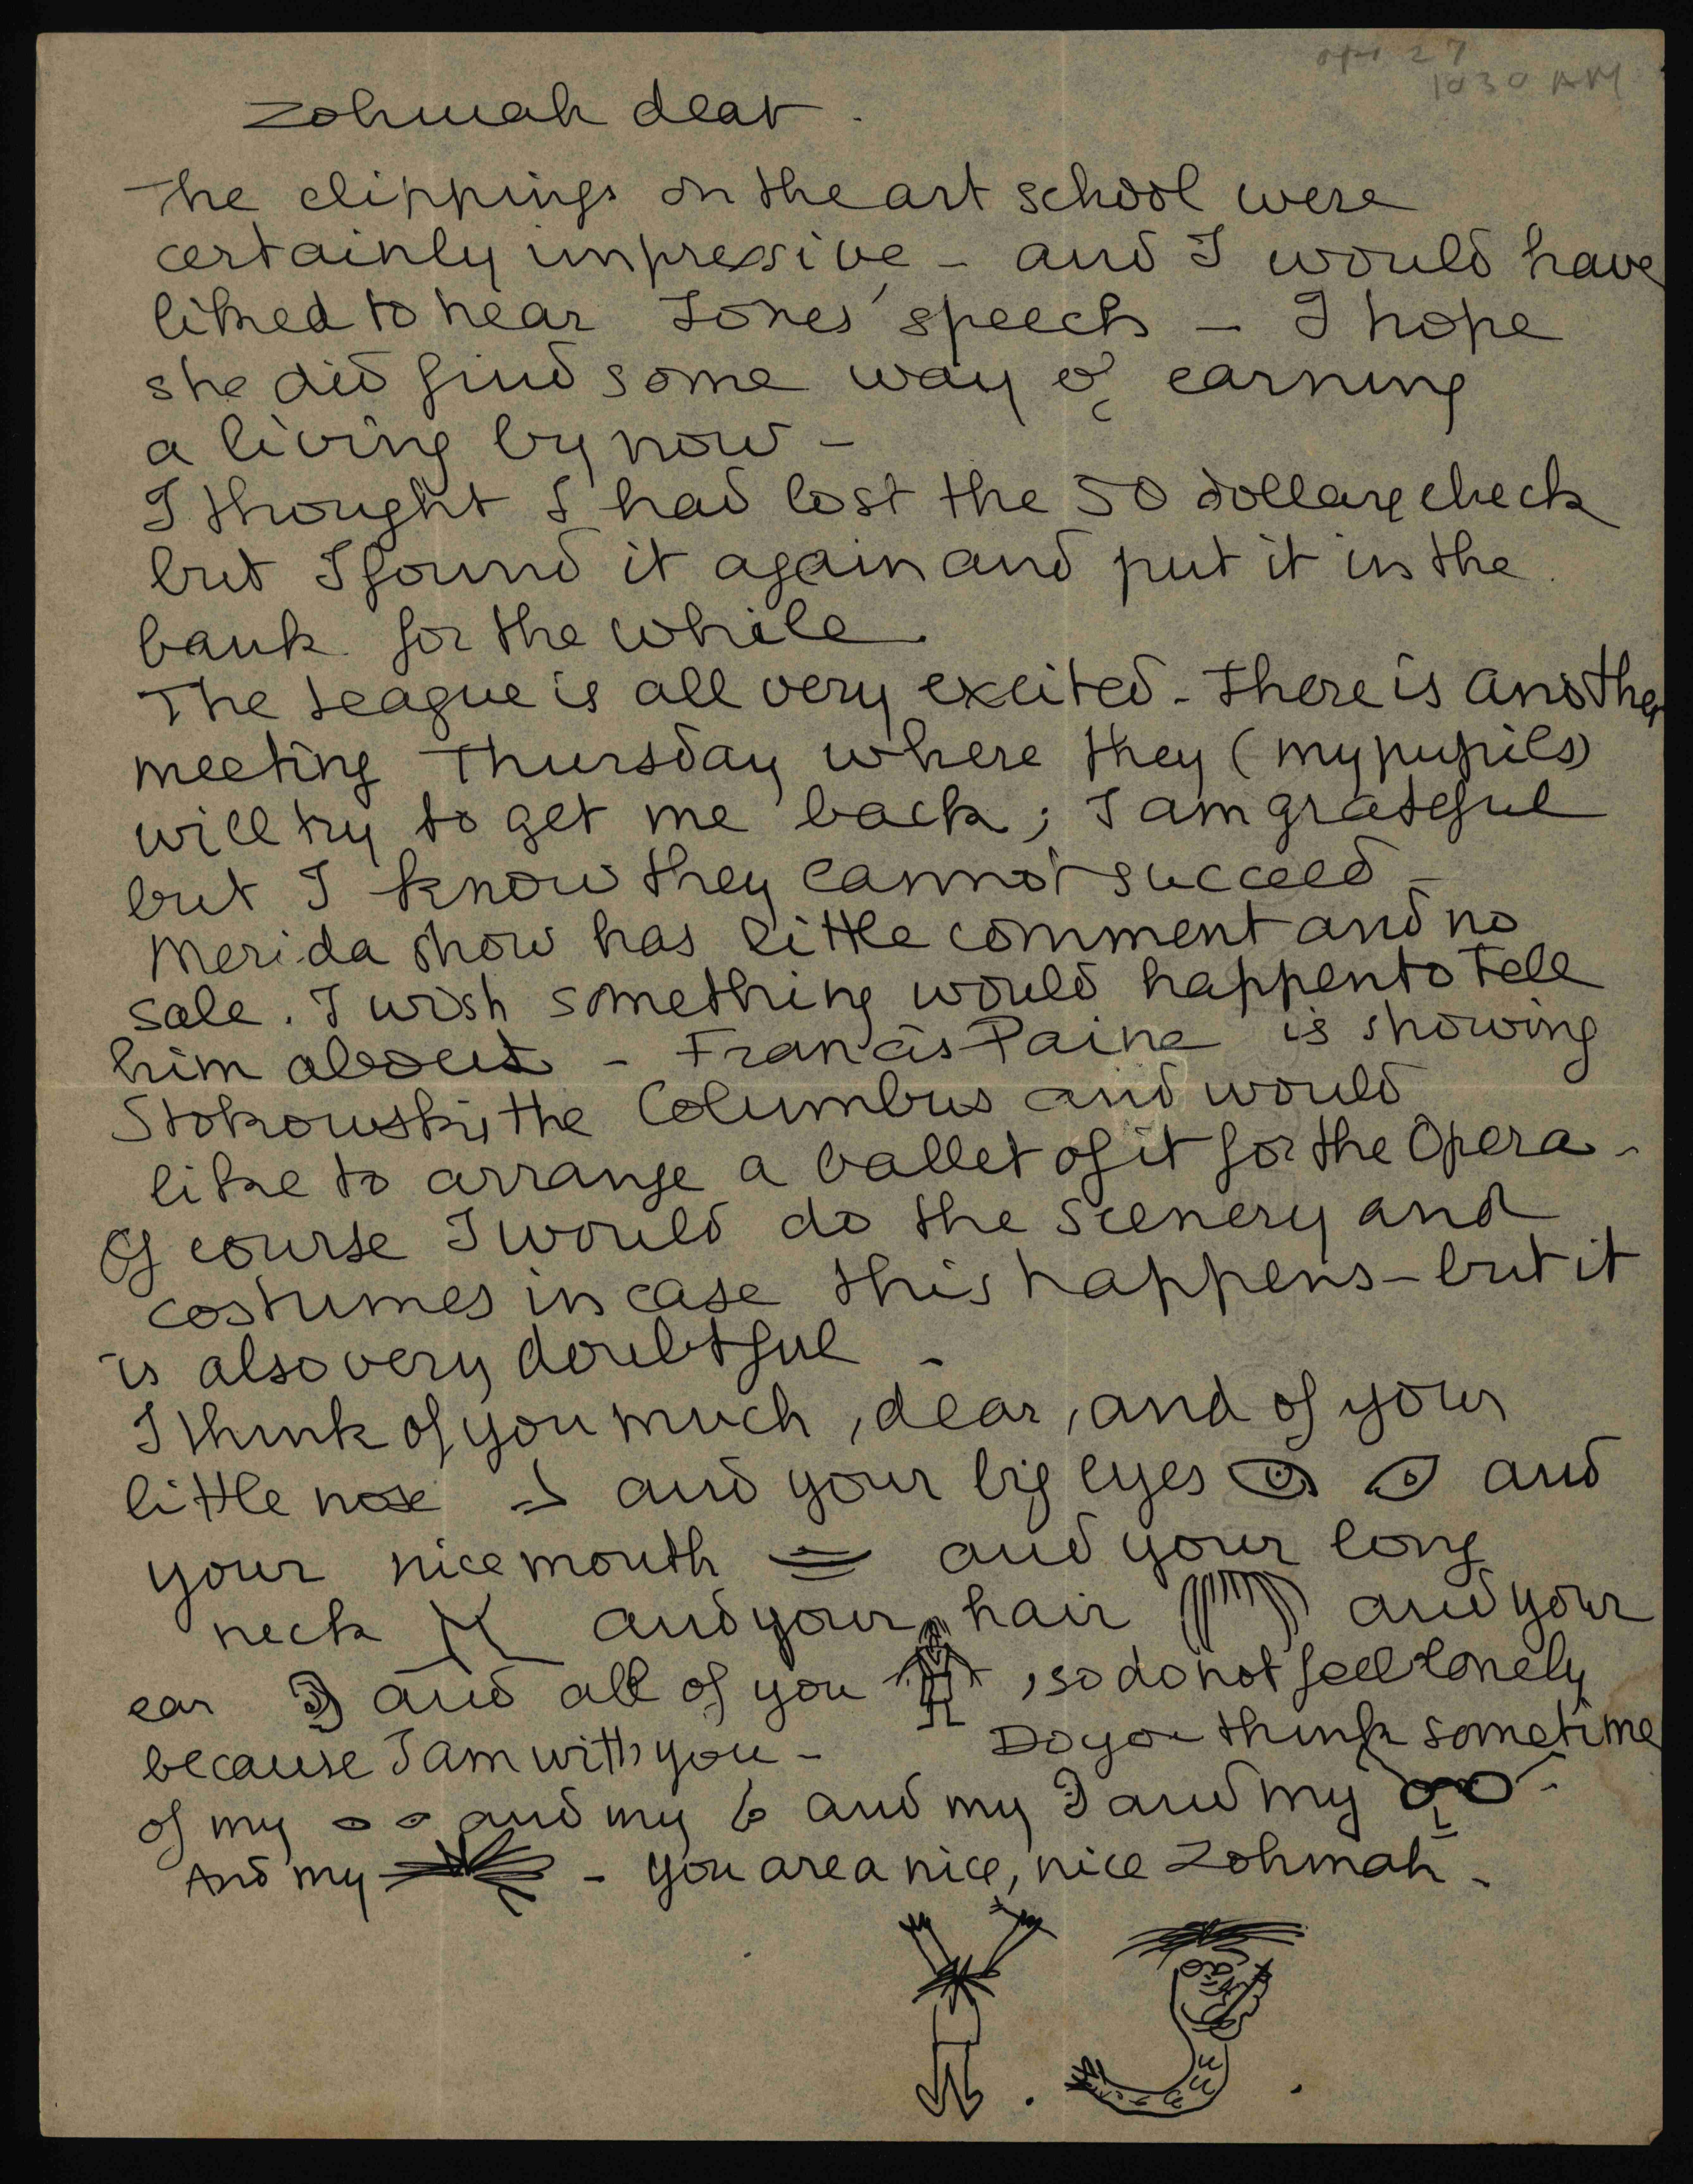 Apr 27
1030 AM
Zohmah dear.
The clippings on the art school were
certainly impressive - and I would have
liked to hear Jones' speech - I hope
she did find some way of earning
a living by now -
I thought I had lost the 50 dollars check
but I found it again and put it in the
bank for the while.
The League is all very excited - there is another
meeting Thursday where they (my pupils)
will try to get me back; I am grateful
but I know they cannot succeed -
Merida show has little comment and no
sale. I wish something would happen to tell
him about - Francis Paine is showing
Stokowski, the Columbus and would
like to arrange a ballet of it for the Opera -
Of course I would do the scenery and
costumes in case this happens - but it
is also very doubtful -
I think of you much, dear, and of your
little nose and your big eyes and
your nice mouth and your long
neck and your hair and your
ear and all of you, so do not feel lonely
because I am with you - Do you think sometime
of my and my and my and my -
And my - you are a nice, nice Zohmah -